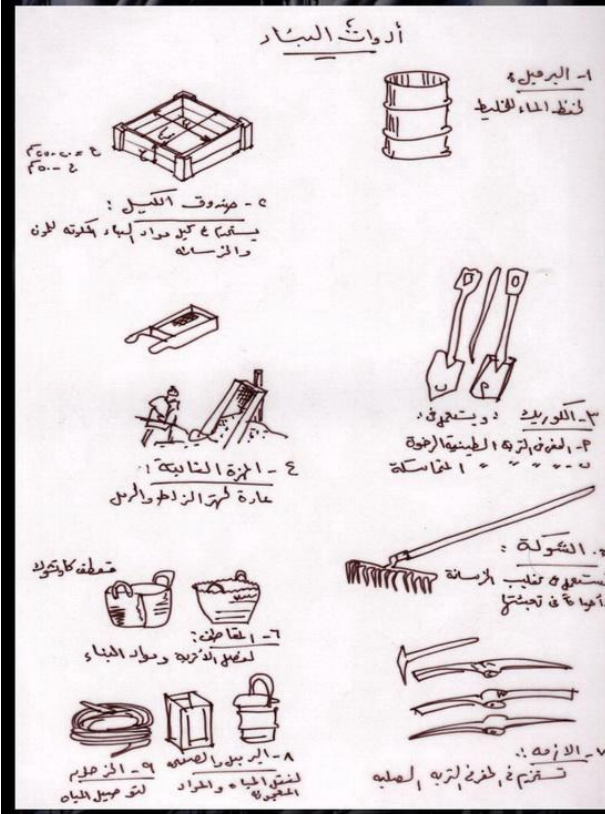 أدوات البناء
١- البرميل :
لحفظ الماء للخليط
٢- صندوق الكيل :
يستخدم في كيل مواد البناء المكونه للمون
والخرسانه
٣- الكوريك : ويستعمل في :
٢- الحفر في التربة الطينية الرخوة
ب- " " " " المتماسكة
٤- المهزة
عادة لهز الزلط والرمل
الشوكة :
تستعمل في تقليب الخرسانة
أحيانا في تعبئتها
مقطف كاوتشوك
٦- المقاطف :
لنقل الأتربة ومواد البناء
٧- الازمه :
تستخدم في الحفر في التربه الصلبه
٨-
لنقل المياه والمواد
٩- الخرطوم
لتوصيل المياه